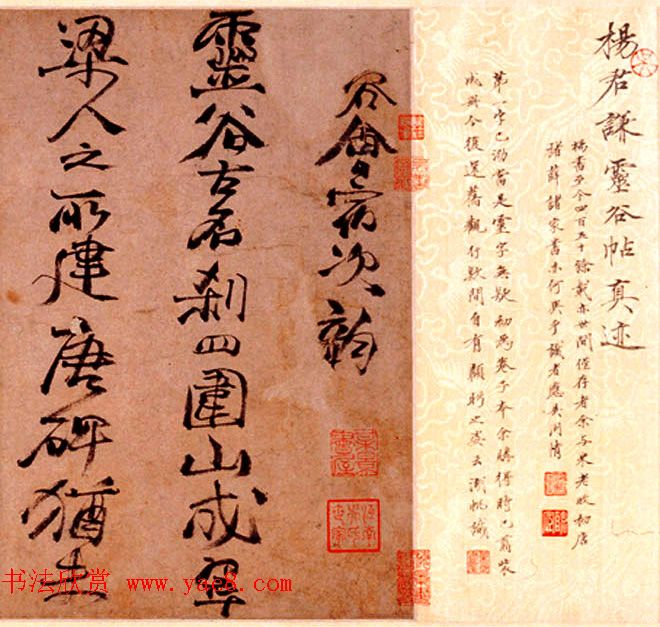 楊君謙靈谷帖真迹
楊書至今四百五十餘載亦世間僅存者余与米老敗
諸薛諸家書未何異乎識者應共闵情
第一字已泐當是靈字無疑初為卷子本余購得時已剪裝
成冊今復還舊觀行欵間自有顧之姿云識
谷會宿次韵
靈谷古名刹四圍山成翠
梁人之所建唐碑猶在
书法欣赏 www.yac8.com